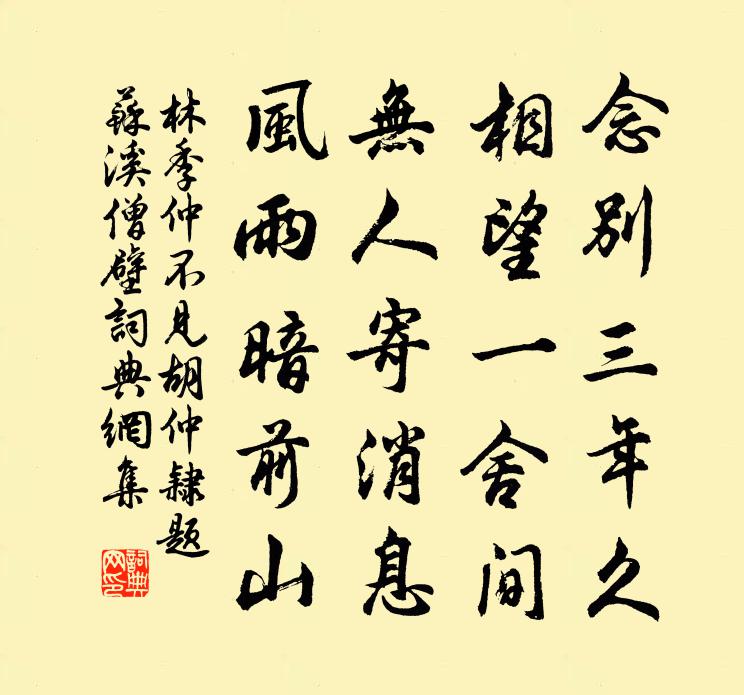 念別三年久
相望一舍间
無人寄消息
風雨暗前山
林季仲不見胡仲隸題
蘇溪僧壁詞典網集
詞典
网印